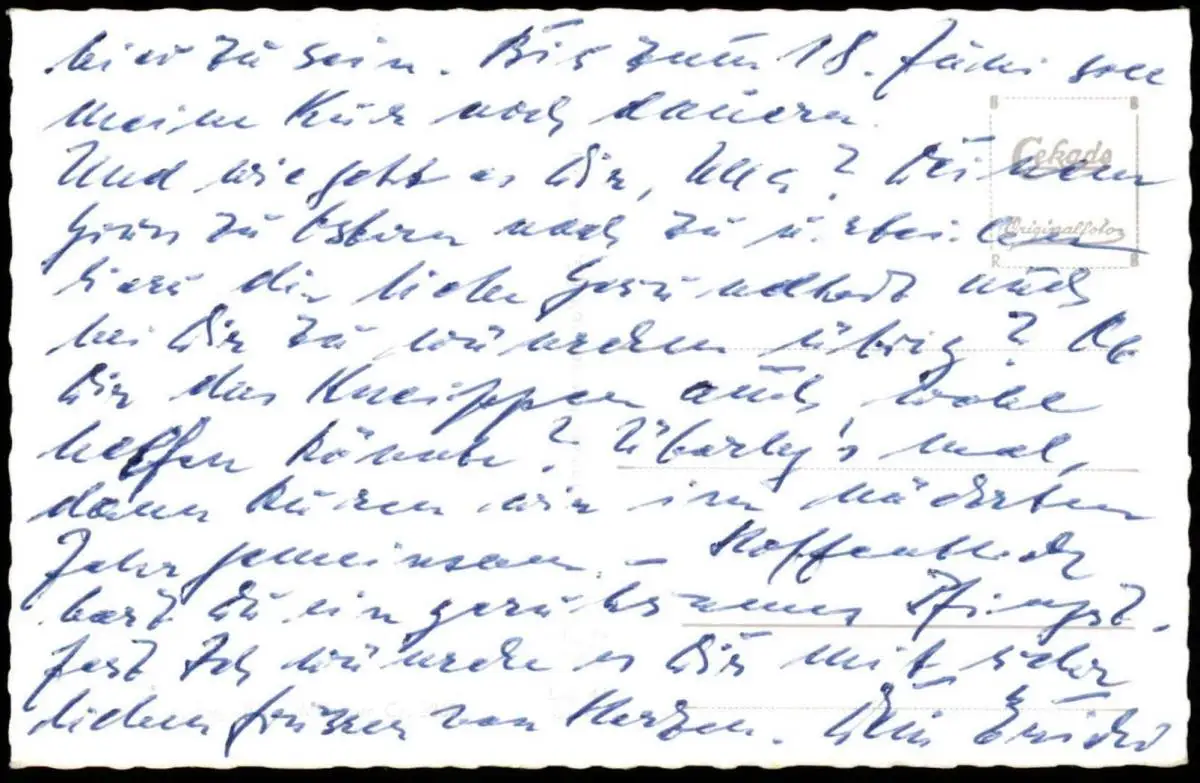 hier zu sein. Bis zum 18. Juni soll
meine Kur noch dauern.
Und wie geht es Dir, Ulla? Deinem
Gruss zu Ostern nach zu urteilen
liess die liebe Gesundheit auch
bei Dir zu wünschen übrig? Ob
Dir das Kneippen auch wohl
helfen könnte? Überleg's mal,
dann kuren wir im nächsten
Jahr gemeinsam. – Hoffentlich
hast Du ein geruhsames Pfingst-
fest. Ich wünsche es Dir mit sehr
lieben Grüssen von Herzen. Dein
Cekade
Originalfotos
B B
R B